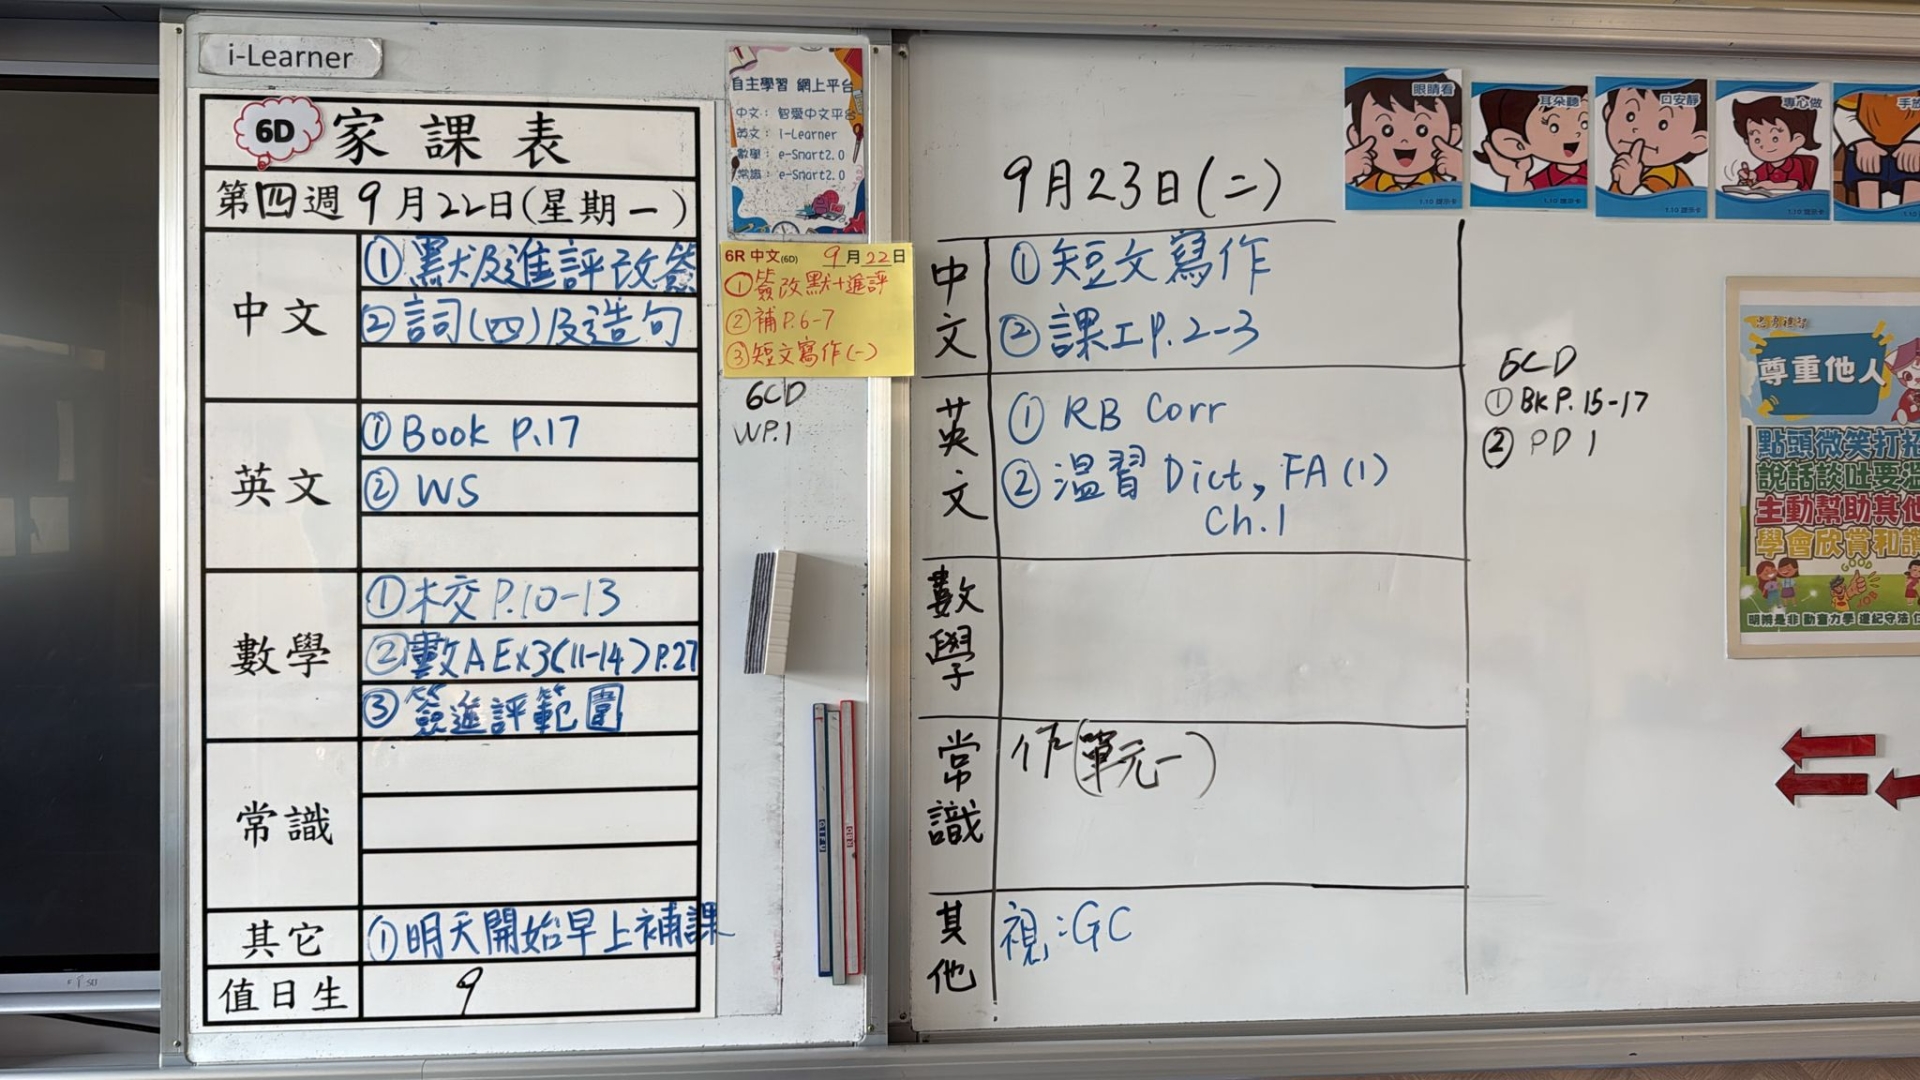 i-Learner
6D 家課表
第四週9月22日(星期一)
中文
①默及進評改簽
②詞(四)及造句
英文
①Book P.17
②WS
數學
①木交P.10-13
②數A Ex3(11-14)P.27
③簽進評範圍
常識
其它
①明天開始早上補課
值日生
9
自主學習 網上平台
中文：智愛中文平台
英文：i-Learner
數學：e-Smart2.0
常識：e-Smart2.0
6R 中文(6D) 9月22日
①簽改默+進評
②補P.6-7
③短文寫作(一)
6CD
WP.1
9月23日(二)
中文
①短文寫作
②課工P.2-3
英文
①RB Corr
②溫習Dict, FA(1)
Ch.1
數學
常識
作(單元一)
其他
視:GC
6CD
①BK P.15-17
②PD 1
眼睛看
耳朵聽
口安靜
專心做
手放
尊重他人
點頭微笑打招
說話談吐要溫
主動幫助其他
學會欣賞和讚
JOB
明辨是非 勤奮力學 遵紀守法